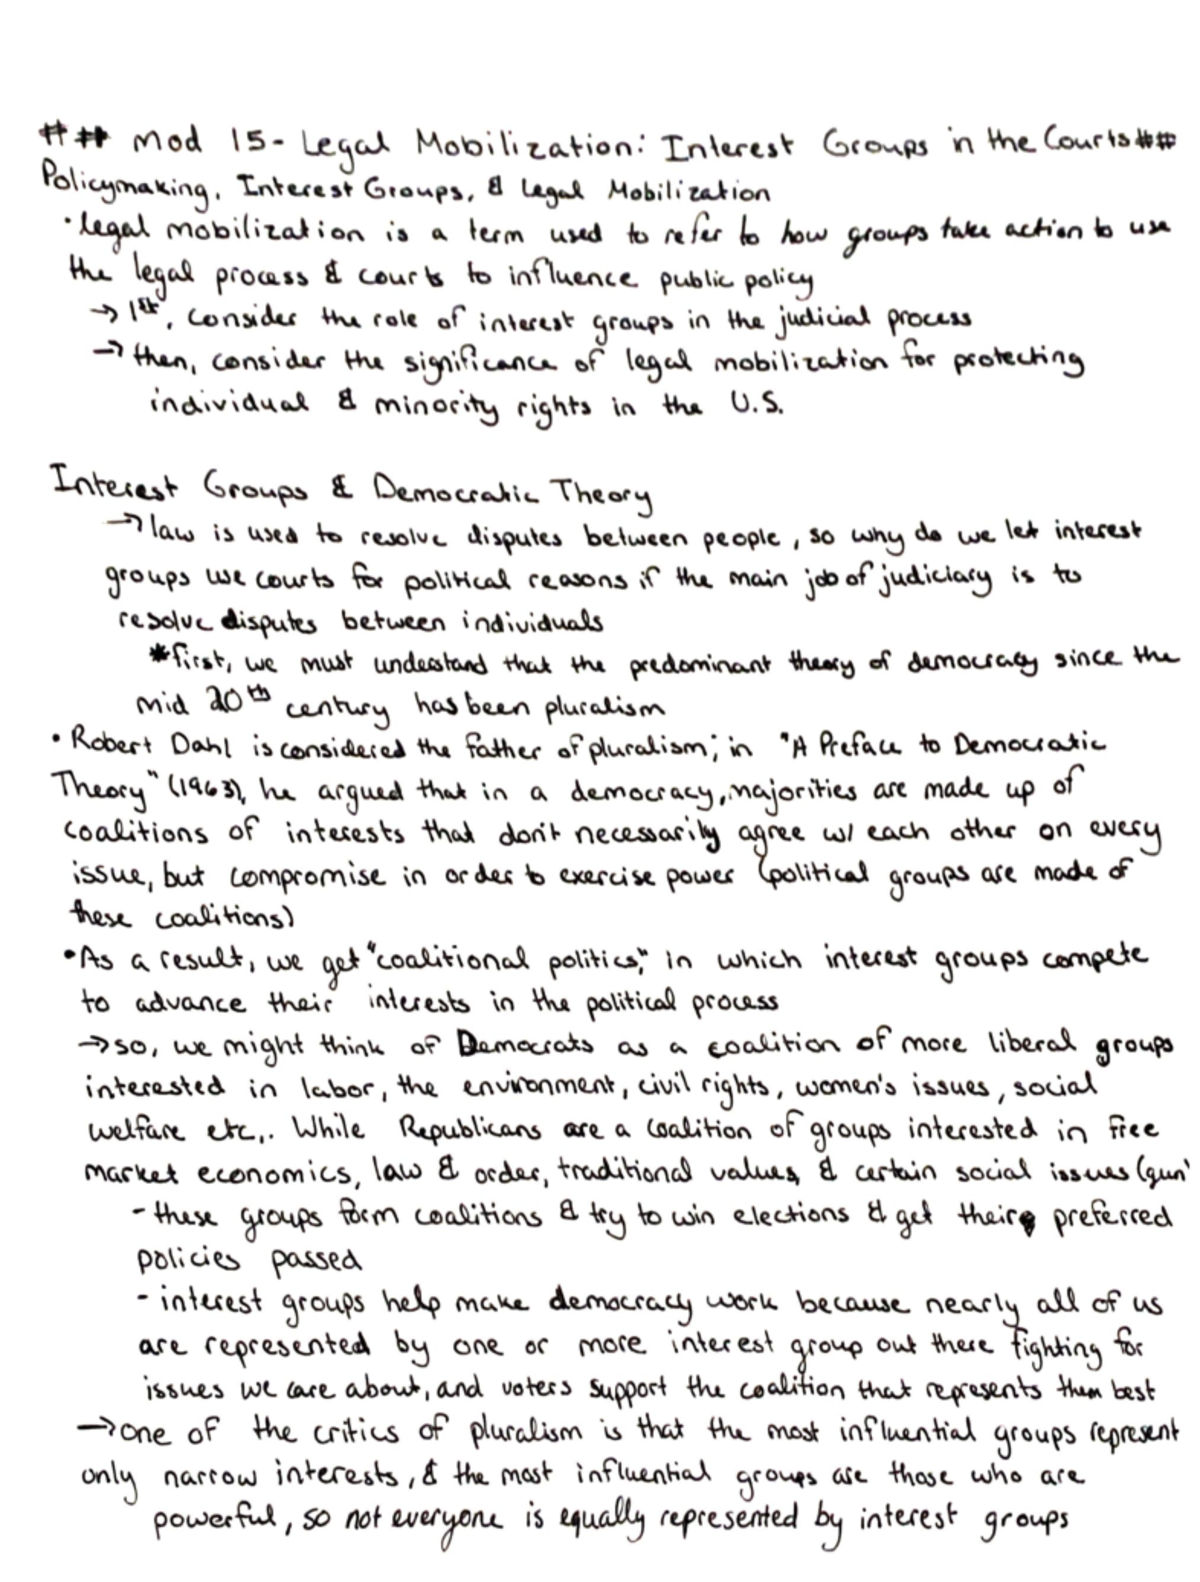 ## Mod 15- Legal Mobilization: Interest Groups in the Courts ##
Policymaking, Interest Groups, & Legal Mobilization
• legal mobilization is a term used to refer to how groups take action to use
the legal process & courts to influence public policy
→ 1st, consider the role of interest groups in the judicial process
→ then, consider the significance of legal mobilization for protecting
individual & minority rights in the U.S.
Interest Groups & Democratic Theory
→ law is used to resolve disputes between people, so why do we let interest
groups use courts for political reasons if the main job of judiciary is to
resolve disputes between individuals
*first, we must understand that the predominant theory of democracy since the
mid 20th century has been pluralism
• Robert Dahl is considered the father of pluralism; in "A Preface to Democratic
Theory" (1963), he argued that in a democracy, majorities are made up of
coalitions of interests that don't necessarily agree w/ each other on every
issue, but compromise in order to exercise power (political groups are made of
these coalitions)
• As a result, we get "coalitional politics," in which interest groups compete
to advance their interests in the political process
→ so, we might think of Democrats as a coalition of more liberal groups
interested in labor, the environment, civil rights, women's issues, social
welfare etc,. While Republicans are a coalition of groups interested in free
market economics, law & order, traditional values, & certain social issues (gun
- these groups form coalitions & try to win elections & get their preferred
policies passed
- interest groups help make democracy work because nearly all of us
are represented by one or more interest group out there fighting for
issues we care about, and voters support the coalition that represents them best
→ one of the critics of pluralism is that the most influential groups represent
only narrow interests, & the most influential groups are those who are
powerful, so not everyone is equally represented by interest groups